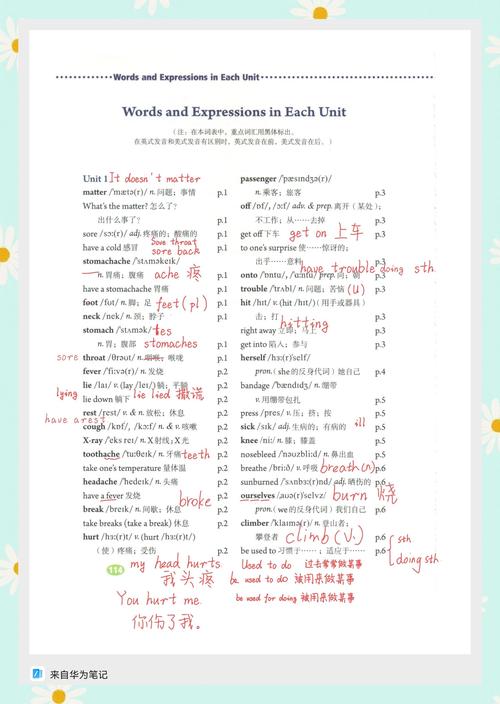 Words and Expressions in Each Unit
Words and Expressions in Each Unit
（注：在本词表中，重点词汇用黑体标出。
在英式发音和美式发音有区别时，英式发音在前，美式发音在后。）
Unit 1 It doesn't matter
matter /'mætə(r)/ n. 问题；事情 p.1
What's the matter? 怎么了？
出什么事了？ p.1
sore /sɔ:(r)/ adj. 疼痛的；酸痛的 p.1
have a cold 感冒 p.1
Sore throat
sore back
stomachache /'stʌməkeɪk/
n. 胃痛；腹痛 p.1
ache 疼
have a stomachache 胃痛 p.1
foot /fut/ n. 脚；足 p.1
feet (pl)
neck /nek/ n. 颈；脖子 p.1
stomach /'stʌmək/
n. 胃；腹部 p.1
stomaches
sore throat /θrəut/ n. 咽喉；喉咙 p.1
fever /'fi:və/ n. 发烧 p.2
lie /laɪ/ v. (lay /leɪ/) 躺；平躺 p.2
lie down 躺下 p.2
lying
lie lied 撒谎
rest /rest/ v. & n. 放松；休息 p.2
have a rest
cough /kɒf/, /kɔ:f/ n. & v. 咳嗽 p.2
X-ray /'eks reɪ/ n. X射线；X光 p.2
toothache /'tu:θeɪk/ n. 牙痛 p.2
teeth
take one's temperature 量体温 p.2
headache /'hedeɪk/ n. 头痛 p.2
have a fever 发烧 p.2
break /breɪk/ n. 间歇；休息 p.2
broke
take breaks (take a break) 休息 p.2
hurt /hɜ:(r)t/ v. (hurt /hɜ:(r)t/)
（使）疼痛；受伤 p.2
114
my head hurts
我头疼
You hurt me.
你伤了我。
passenger /'pæsɪndʒə(r)/
n. 乘客；旅客 p.3
off /ɒf/, /ɔ:f/ adv. & prep. 离开（某处）；
不工作；从……去掉 p.3
get off 下车 p.3
get on 上车
to one's surprise 使……惊讶的；
出乎……意料 p.3
have trouble doing sth.
onto /'ɒntu/, /'ɑ:ntu/ prep. 向；朝 p.3
trouble /'trʌbl/ n. 问题；苦恼 p.3
(U)
hit /hɪt/ v. (hit /hɪt/)（用手或器具）
击；打 p.3
hitting
right away 立即；马上 p.3
get into 陷入；参与 p.3
herself /hɜ:(r)'self/
pron.（she 的反身代词）她自己 p.4
bandage /'bændɪdʒ/ n. 绷带
v. 用绷带包扎 p.5
press /pres/ v. 压；挤；按 p.5
sick /sɪk/ adj. 生病的；有病的 p.5
ill
knee /ni:/ n. 膝；膝盖 p.5
nosebleed /'nəuzbli:d/ n. 鼻出血 p.5
breathe /bri:ð/ v. 呼吸 p.6
breath (n)
sunburned /'sʌnbɜ:(r)nd/ adj. 晒伤的 p.6
burn 烧
ourselves /ɑuə(r)'selvz/
pron.（we 的反身代词）我们自己 p.6
climber /'klaɪmə(r)/ n. 登山者；
攀登者 p.6
climb (V.)
be used to 习惯于……；适应于…… p.6
sth
doing sth.
Used to do 过去常常做某事
be used to do 被用来做某事
be used for doing 被用来做某事
来自华为笔记